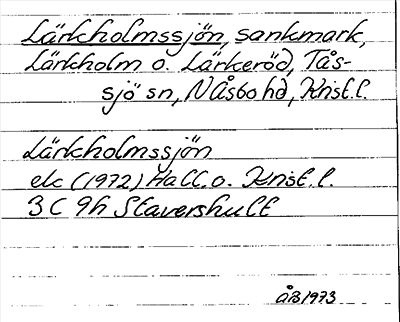 Lärkholmssjön, sankmark,
Lärkholm o. Lärkeröd, Tås-
sjö sn, N Åsbo hd, Krist. l.
Lärkholmssjön
ek (1972) Hall. o. Krist. l.
3 C 9h Stavershult
ÅB 1973